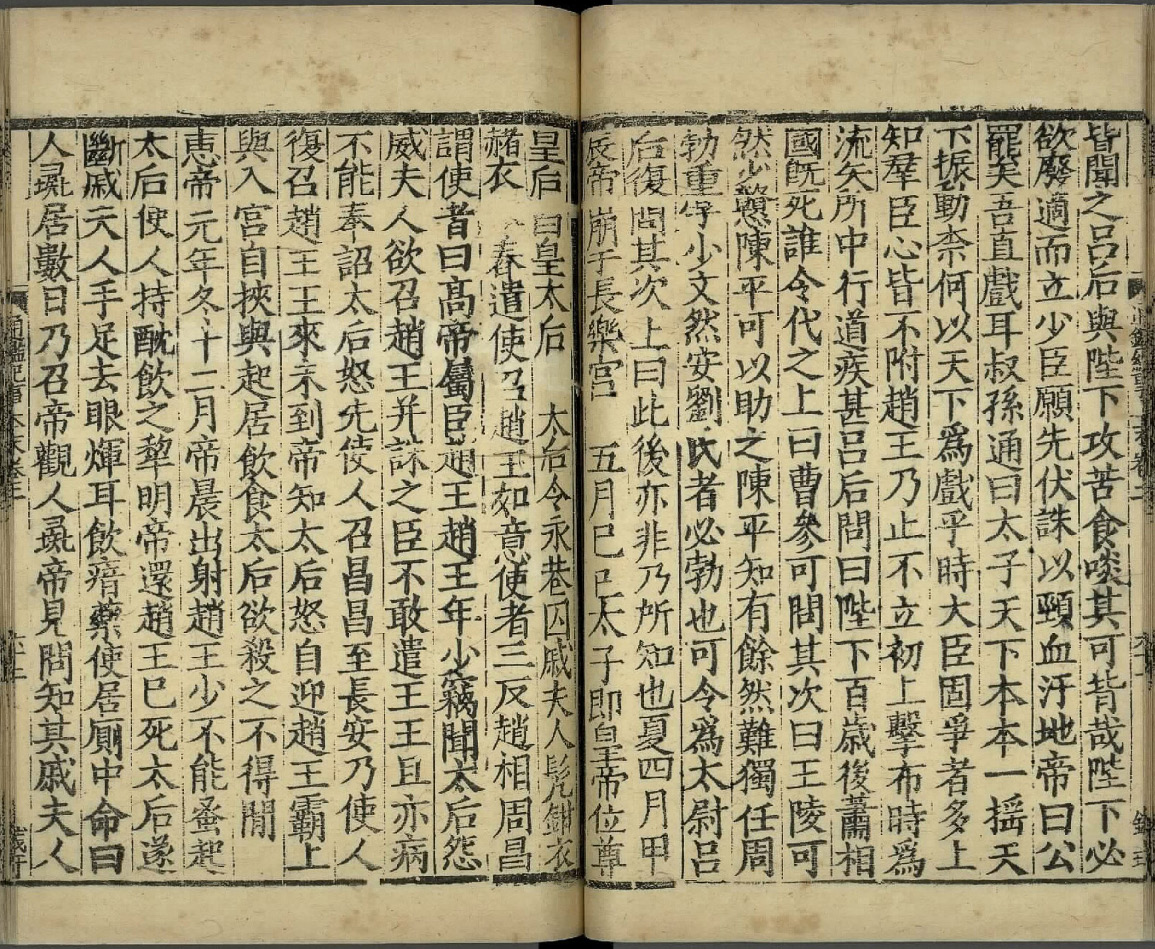 皆聞之呂后與陛下攻苦食啖其可背哉陛下必
欲廢適而立少臣願先伏誅以頸血汙地帝曰公
罷矣吾直戲耳叔孫通曰太子天下本本一搖天
下振動柰何以天下爲戲乎時大臣固爭者多上
知羣臣心皆不附趙王乃止不立初上擊布時爲
流矢所中行道疾甚呂后問曰陛下百歲後蕭相
國旣死誰令代之上曰曹參可問其次曰王陵可
然少戇陳平可以助之陳平知有餘然難獨任周
勃重厚少文然安劉氏者必勃也可令爲太尉呂
后復問其次上曰此後亦非乃所知也夏四月甲
辰帝崩于長樂宮 五月己巳太子即皇帝位尊
皇后曰皇太后 太后令永巷囚戚夫人髡鉗衣
赭衣 舂遣使召趙王如意使者三反趙相周昌
謂使者曰高帝屬臣趙王趙王年少竊聞太后怨
戚夫人欲召趙王并誅之臣不敢遣王王且亦病
不能奉詔太后怒先使人召昌昌至長安乃使人
復召趙王王來未到帝知太后怒自迎趙王霸上
與入宮自挾與起居飲食太后欲殺之不得間
惠帝元年冬十二月帝晨出射趙王少不能蚤起
太后使人持酖飲之犂明帝還趙王已死太后遂
斷戚夫人手足去眼煇耳飲瘖藥使居廁中命曰
人彘居數日乃召帝觀人彘帝見問知其戚夫人